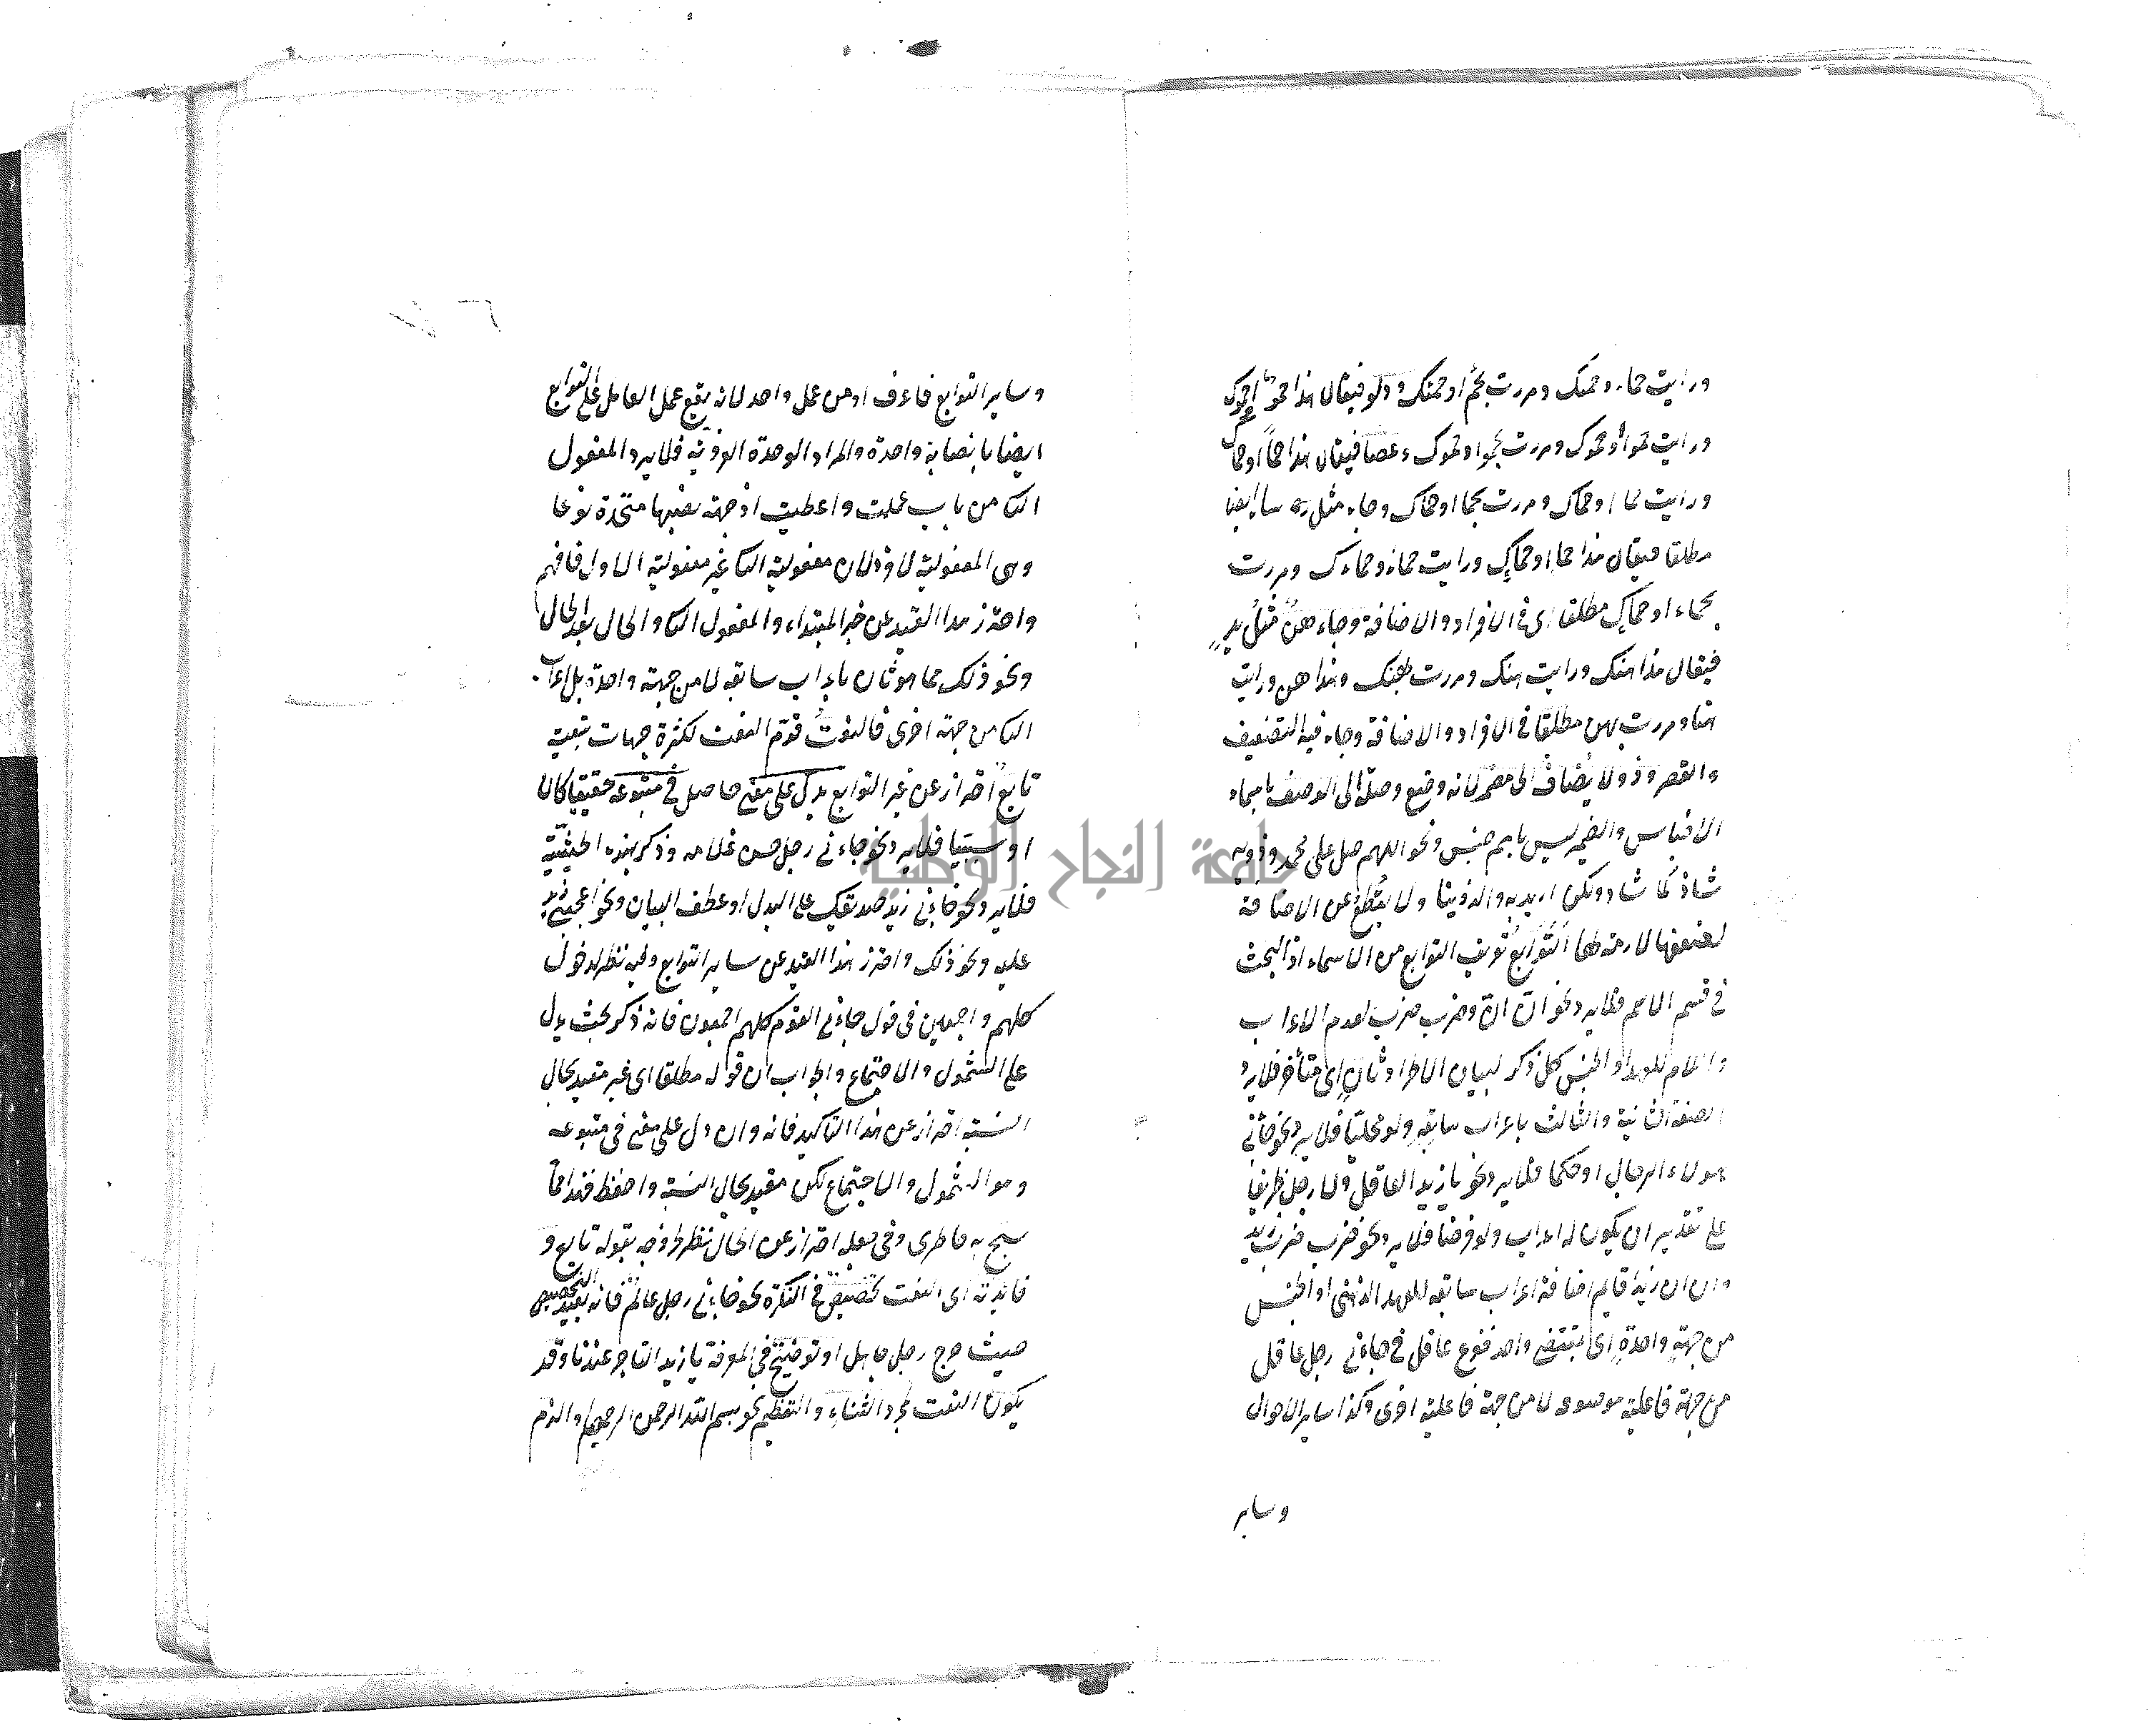 ورايت حماء وحمئك ومررت بحمٔ او حمئك ودلو فيقال هذا حموٌ او حموك
ورايت حموا او حموك ومررت بحمو او حموك وعصا فيقال هذا حماً او حماك
ورايت حما او حماك ومررت بحما او حماك وجاء مثل ايضا
مطلقا فيقال هذا حما او حماك ورايت حماء وحماءك ومررت
بحماء او حمائك مطلقا اى فى الافراد والاضافة وجاء هنٌ مثل يدٍ
فيقال هذا هنك ورايت هنك ومررت بهنك وهذا هن ورايت
هنا ومررت بهن مطلقا فى الافراد والاضافة وجاء فيه التضعيف
والقصر وذو لا يُضاف الى مضمر لانه وضع وصلة الى الوصف باسماء
الاجناس والضمير ليس باسم جنس ونحو اللهم صل على محمد وذويه
شاذ كما شاذ ولكن اريد به والذوينا ولا يُقطع عن الاضافة
لضعفها لازمة لها التَّوَابعُ تعريف التوابع من الاسماء اذ البحث
فى قسم الاسم فلا يرد نحو انّ انّ وضرب ضرب لعدم الاعراب
واللام للعهد او الجنس كل ذكر لبيان الاطراد ثانٍ اى متأخر فلا يرد
الصفة الثانية والثالث باعراب سابقه ولو محليّا فلا يرد نحو جائنى
هولاء الرجال او حكما فلا يرد نحو يا زيد العاقل ولا رجل ظريفا
على تقدير ان يكون له اعراب ولو فرضا فلا يرد نحو ضرب ضرب زيد
وان ان زيدا قايم اضافة اعراب سابقه للعهد الذهنى او الجنس
من جهةٍ واحدةٍ اى بمقتضى واحد فرفع عاقل فى جاءنى رجل عاقل
من جهة فاعلية موصوفه لا من جهة فاعلية اخرى وكذا ساير الاحوال
وساير
وساير التوابع فاعرف او من عمل واحد لانه يقع عمل العامل على التوابع
ايضا بانصبابة واحدة والمراد الوحدة العرفيّة فلا يرد المفعول
الثا من باب علمت واعطيت اذ جهة نصبها متحدة نوعا
وهى المفعولية لا فردا لان مفعولية الثا غير مفعولية الاول فافهم
واحترز بهذا القيد عن خبر المبتداء والمفعول الثا والحال بعد الحال
ونحو ذلك مما هو ثان باعراب سابقه لا من جهة واحدة بل اعراب
الثا من جهة اخرى فالنعتُ قدّم النعت لكثرة جهات تبعيته
تابعٌ احتراز عن غير التوابع يدل على معنى حاصل فى متبوعه حقيقيا كان
او سببيّا فلا يرد نحو جاءنى رجل حسن غلامه وذكر بهذه الحيثيّة
فلا يرد نحو جاءنى زيد صديقك على البدل او عطف البيان ونحو اعجبنى زيد
علمه ونحو ذلك واحترز بهذا القيد عن ساير التوابع وفيه نظر لدخول
كلهم واجمعين فى قول جاءنى القوم كلهم اجمعون فانه ذكر بحيث يدل
على الشمول والاجتماع والجواب ان قوله مطلقا اى غير مقيد بحال
النسبة احتراز عن هذا التاكيد فانه وان دل على معنى فى متبوعه
وهو الشمول والاجتماع لكن مقيد بحال النسبة واحفظ فهذا مما
سبح به خاطرى وفى جعله احتراز عن الحال نظر لخروجه بقوله تابع و
فائدته اى النعت تخصيصٌ فى النكرة نحو جاءنى رجل عالم فانه يفيد التخصيص
حيث خرج رجل جاهل او توضيح فى المعرفة يا زيد التاجر عندنا وقد
يكون النعت لمجرد الثناء والتعظيم نحو بسم الله الرحمن الرحيم او الذم
جامعة النجاح الوطنية